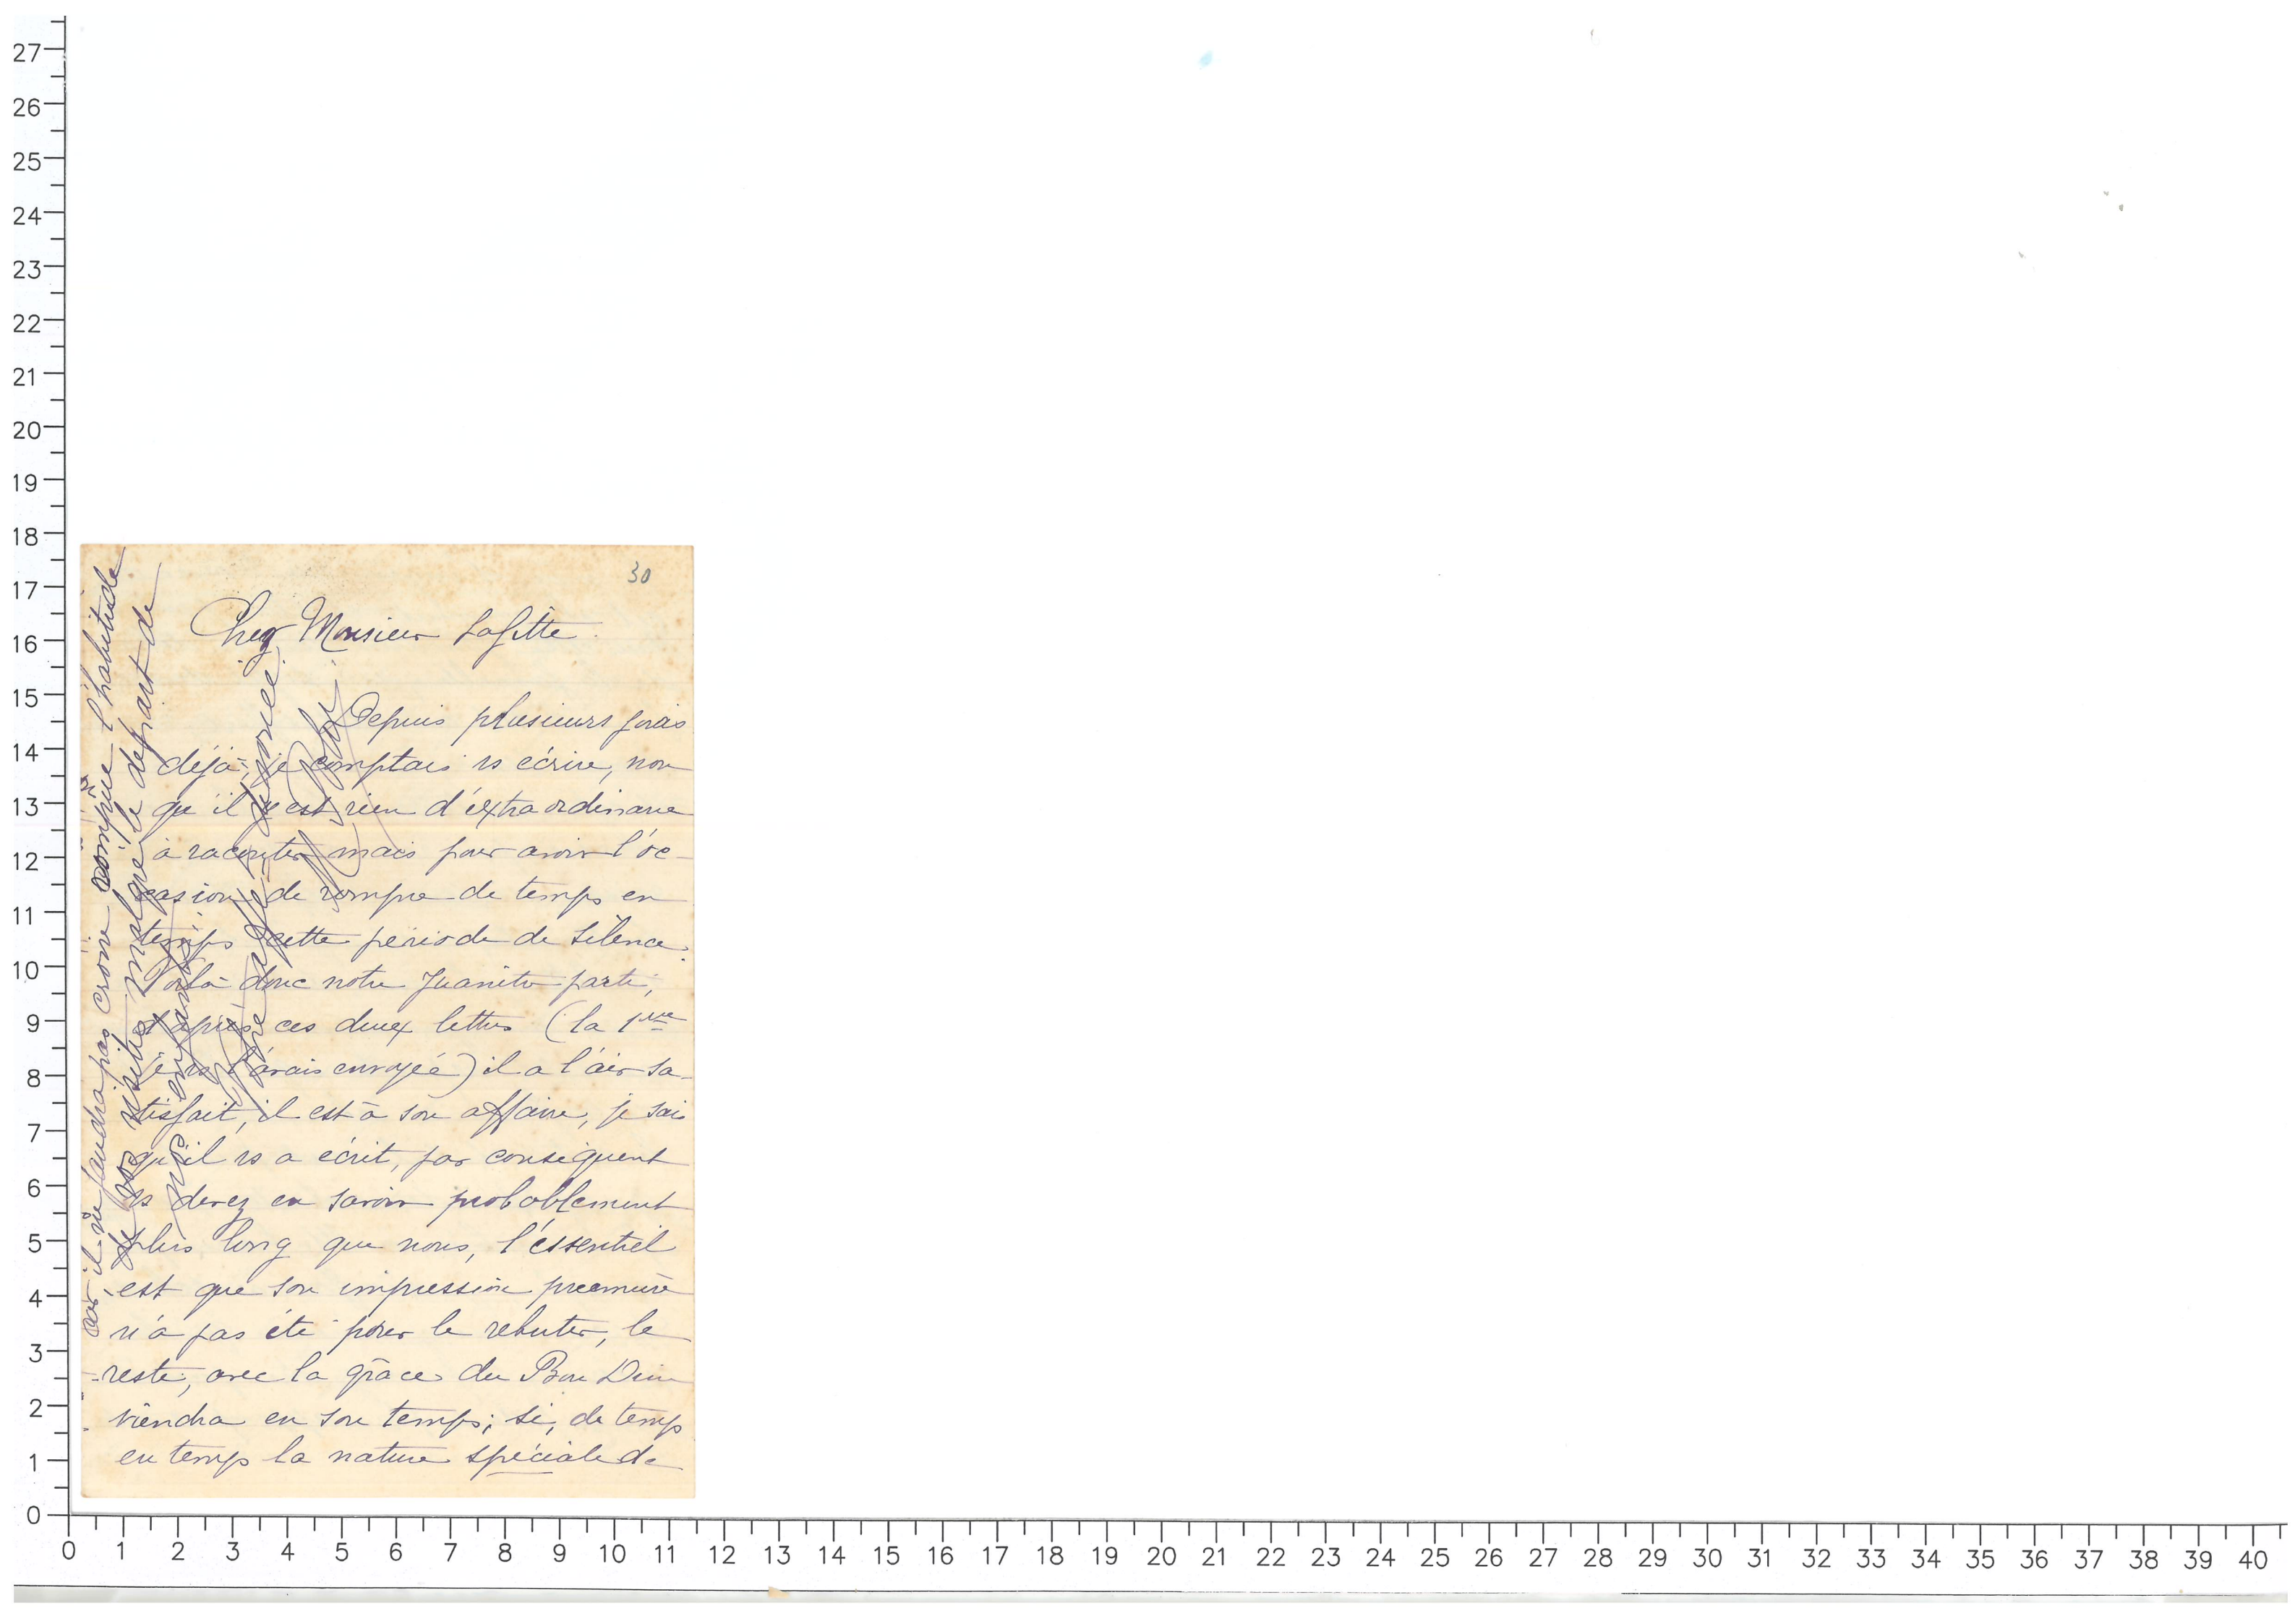 30
Cher Monsieur Lafitte.
Depuis plusieurs jours
déjà, je comptais vs écrire, non
qu'il y est rien d'extraordinaire
à raconter mais pour avoir l'oc-
casion de rompre de temps en
temps cette période de silence.
Voilà donc notre Juanito parti,
d'après ces deux lettres (la 1ère
je vs l'avais envoyée) il a l'air sa-
tisfait, il est à son affaire, je sais
qu'il vs a écrit, par conséquent
vs devez en savoir probablement
plus long que nous, l'essentiel
est que son impression première
n'a pas été pour le rebuter, le
reste, avec la grâce du Bon Dieu
viendra en son temps; si, de temps
en temps la nature spéciale de
car, il ne faudra pas croire rompue l'habitude
de vos visites malgré le départ de
nos enfants.
Votre affectionnée